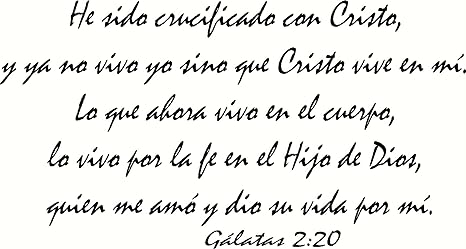 He sido crucificado con Cristo,
y ya no vivo yo sino que Cristo vive en mí.
Lo que ahora vivo en el cuerpo,
lo vivo por la fe en el Hijo de Dios,
quien me amó y dio su vida por mí.
Gálatas 2:20